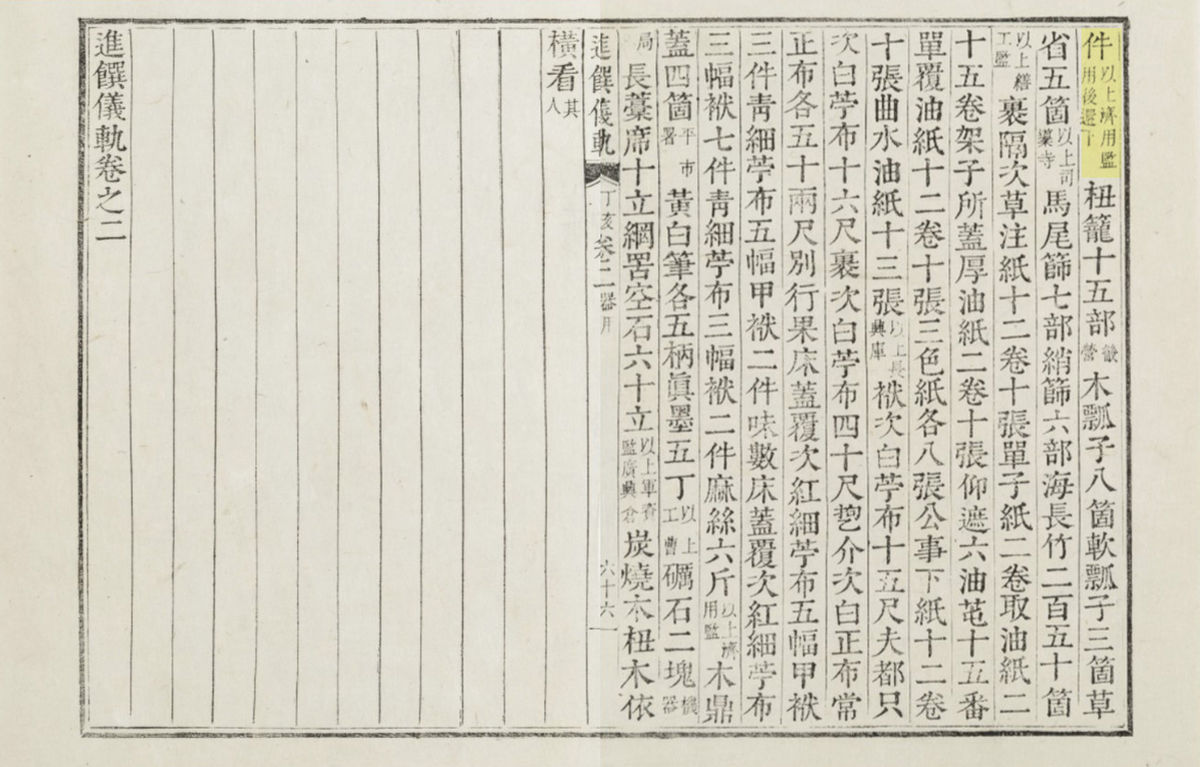 件以上濟用監用後還下杻籠十五部營木瓢子八箇軟瓢子三箇草
省五箇以上司䆃寺馬尾篩七部綃篩六部海長竹二百五十箇
以上繕工監裹隔次草注紙十二卷十張單子紙二卷取油紙二
十五卷架子所蓋厚油紙二卷十張仰遮六油芚十五番
單覆油紙十二卷十張三色紙各八張公事下紙十二卷
十張曲水油紙十三張以上長興庫袱次白苧布十五尺夫都只
次白苧布十六尺裹次白苧布四十尺乫介次白正布常
正布各五十兩尺別行果床蓋覆次紅細苧布五幅甲袱
三件靑細苧布五幅甲袱二件味數床蓋覆次紅細苧布
三幅袱七件靑細苧布三幅袱二件麻絲六斤以上濟用監木鼎
蓋四箇平市署黃白筆各五柄眞墨五丁以上工曹礪石二塊機器
局長藁席十立網罟空石六十立以上軍資監廣興倉炭燒木杻木依
進饌儀軌 丁亥 卷二 器用 六十六
橫看其人
進饌儀軌卷之二